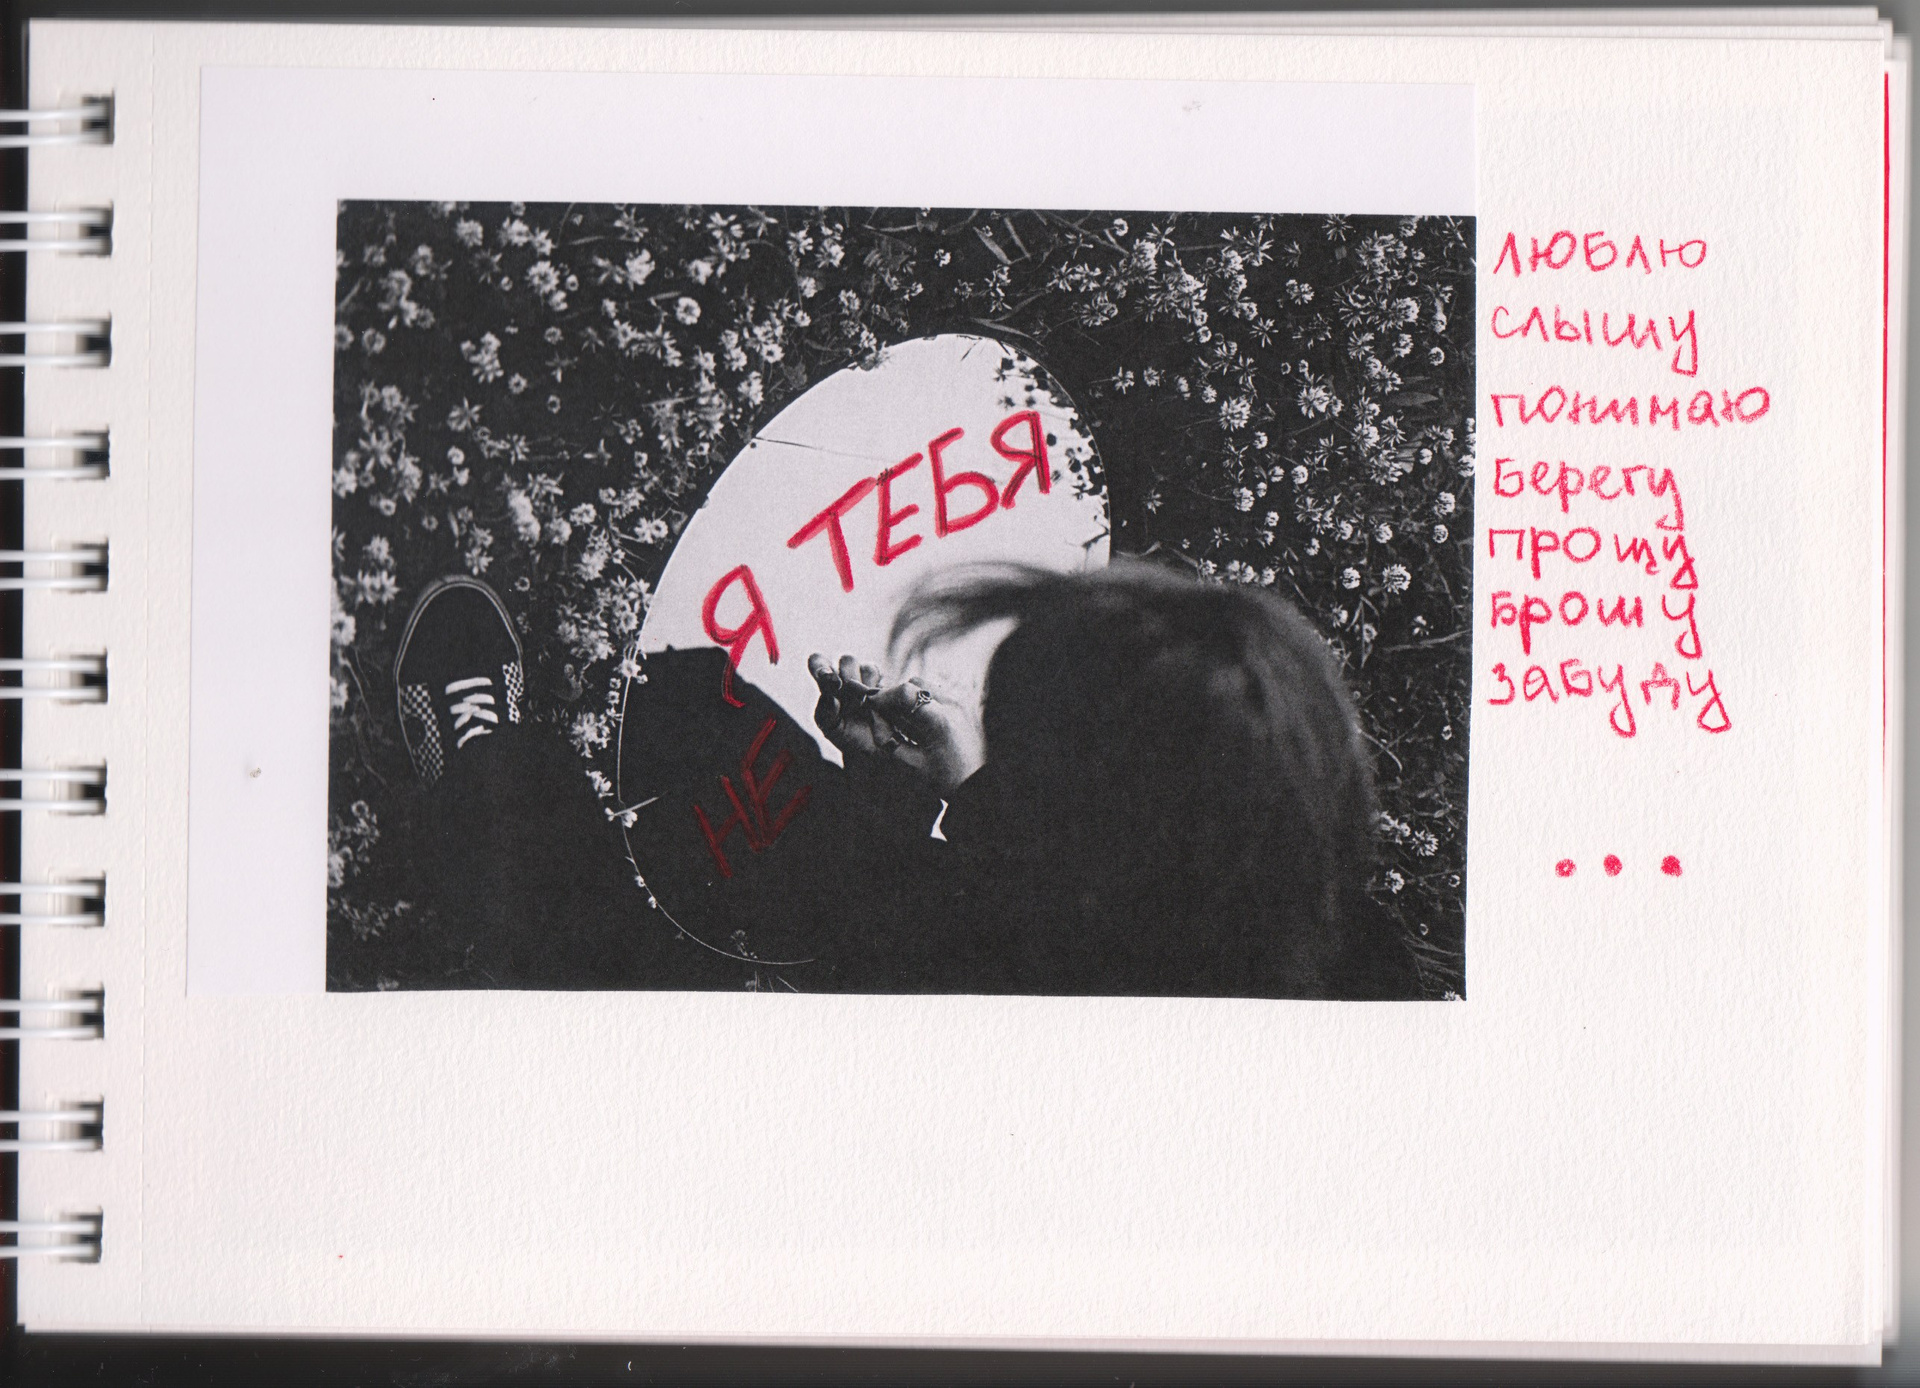 Я ТЕБЯ
НЕ
люблю
слышу
понимаю
берегу
прощу
брошу
забуду
...